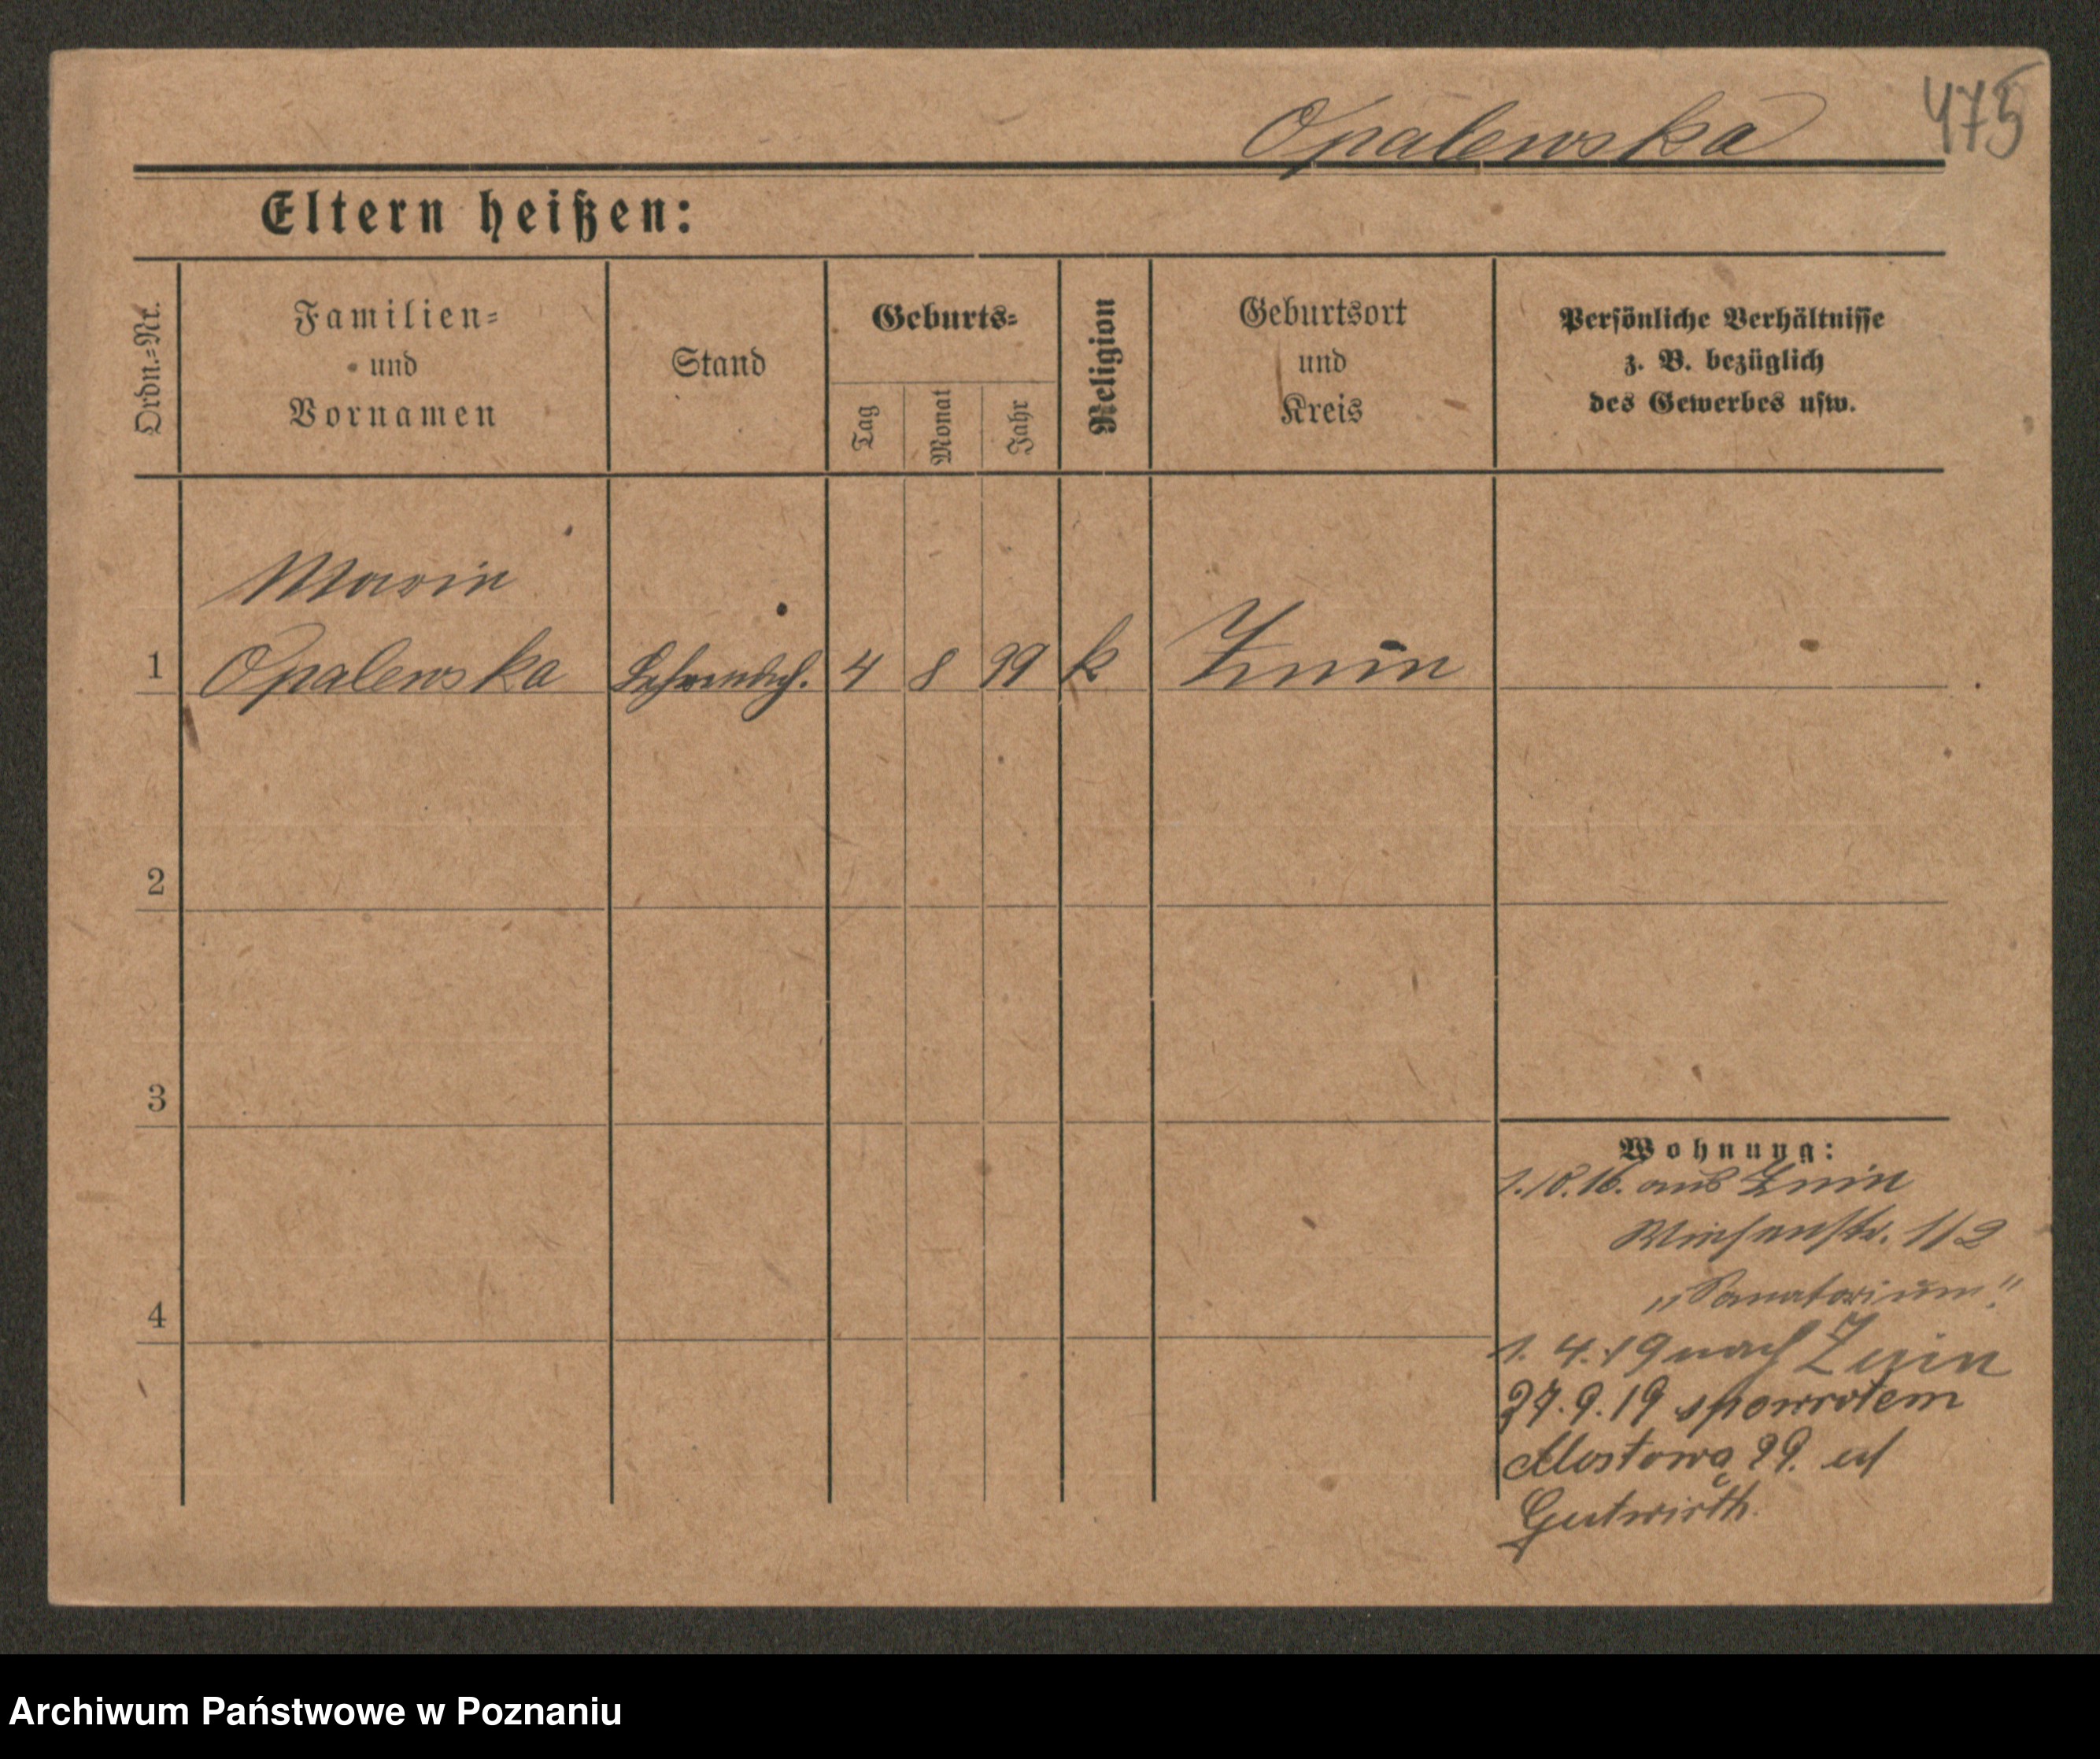 Opalewska
475
Eltern heißen:
Ordn.-Nr.
Familien-
und
Vornamen
Stand
Geburts-
Tag
Monat
Jahr
Religion
Geburtsort
und
Kreis
Persönliche Verhältnisse
z. B. bezüglich
des Gewerbes usw.
Marie
1 Opalewska 4 8 99 k Znin
2
3
4
Wohnung:
1.10.16. aus Znin
Wiesenstr. 1/2
„Sanatorium“.
1. 4. 19 nach Znin
27. 9. 19 spowrotem
Mostowa 29.
Gutwirth.
Archiwum Państwowe w Poznaniu